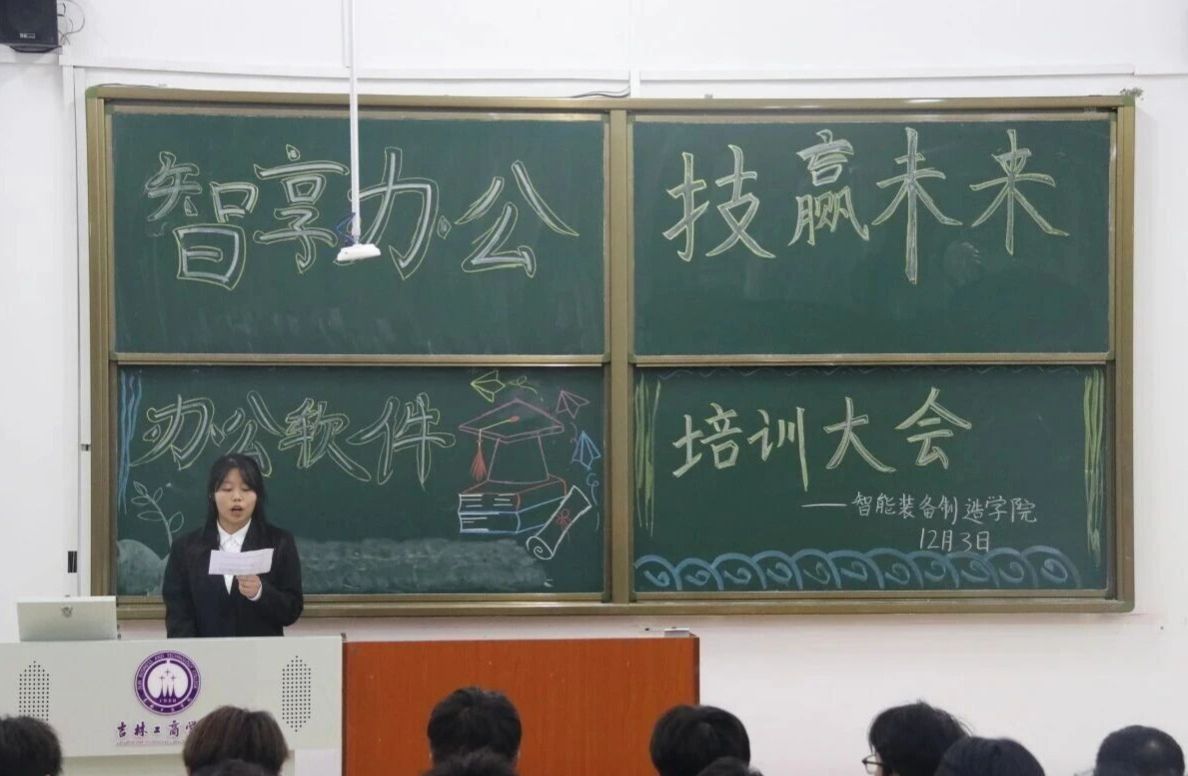 智享办公
技赢未来
办公软件
培训大会
——智能装备制造学院
12月3日
吉林工商学